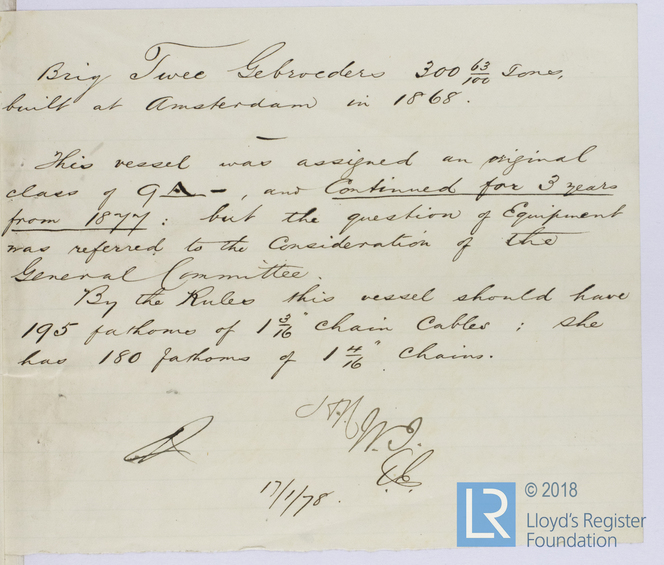 Brig Twee Gebroeders 300 63/100 Tons,
built at Amsterdam in 1868.
This vessel was assigned an original
class of 9 A –, and Continued for 3 years
from 1877: but the question of Equipment
was referred to the Consideration of the
General Committee.
By the Rules this vessel should have
195 fathoms of 1 3/16" Chain Cables; she
has 180 fathoms of 1 4/16" Chains.
W.J.
17/1/78.
LR
© 2018
Lloyd's Register
Foundation